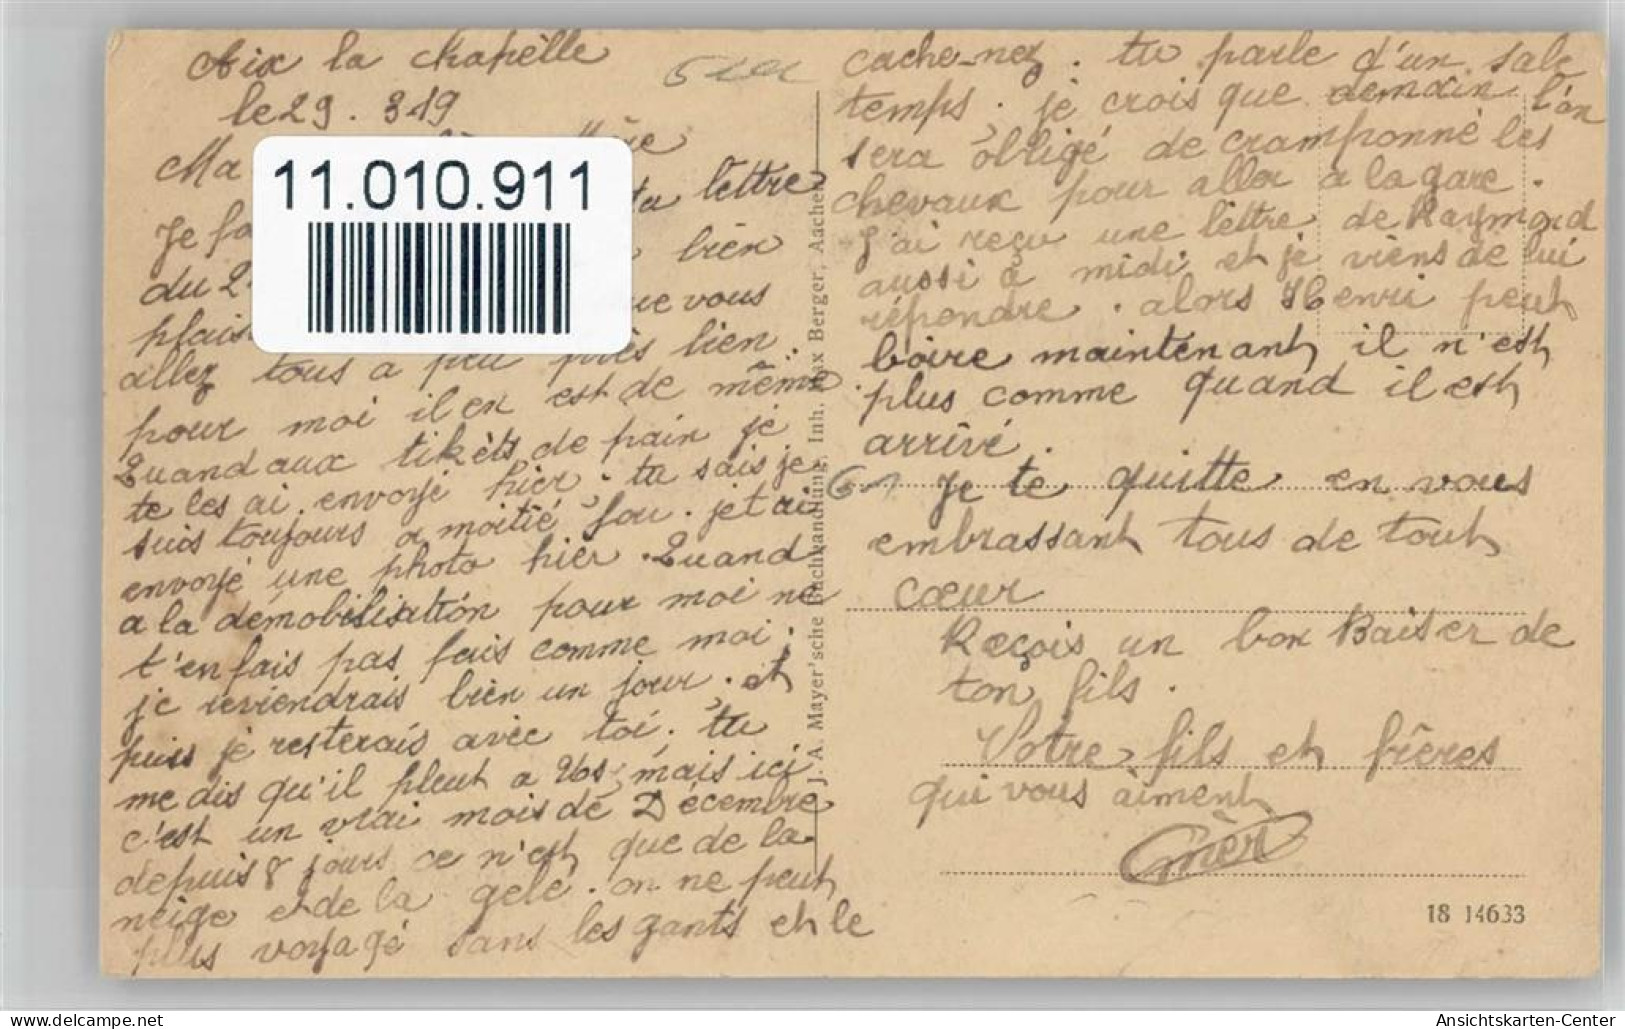 Aix la chapèlle
le 29. 3 19
Ma
11.010.911
ta lèttre
Je
bièn
du 2
que vous
plais
allez tous a peu près bien.
pour moi il en est de même
Quand aux tikèts de pain je
te les ai envoyé hièr. tu sais je
suis toujours a moitié fou. je t'ai
envoyé une photo hièr. Quand
a la démobilisation pour moi ne
t'en fais pas fais comme moi.
je reviendrais bièn un jour. et
puis je resterais avèc toi. tu
me dis qu'il pleut a mais ici
c'est un vrai mois de Décembre
depuis 8 jours ce n'est que de la
neige et de la gelé. on ne peut
plus voyagé sans les gants et le
cache-nez. tu parle d'un sale
temps. je crois que demain l'on
sera obligé de cramponné les
chevaux pour aller a la gare.
J'ai reçu une lèttre de Raymond
aussi à midi et je vièns de lui
répondre. alors Henri peut
boire maintenant il n'est
plus comme quand il est
arrivé.
Je te quitte en vous
embrassant tous de tout
cœur
Reçois un bon Baiser de
ton fils.
Votre fils et frères
qui vous aiment
J. A. Mayer'sche Buchhandlung, Inh. Max Berger, Aachen
18 14633
www.oldthing.de
Ansichtskarten-Center